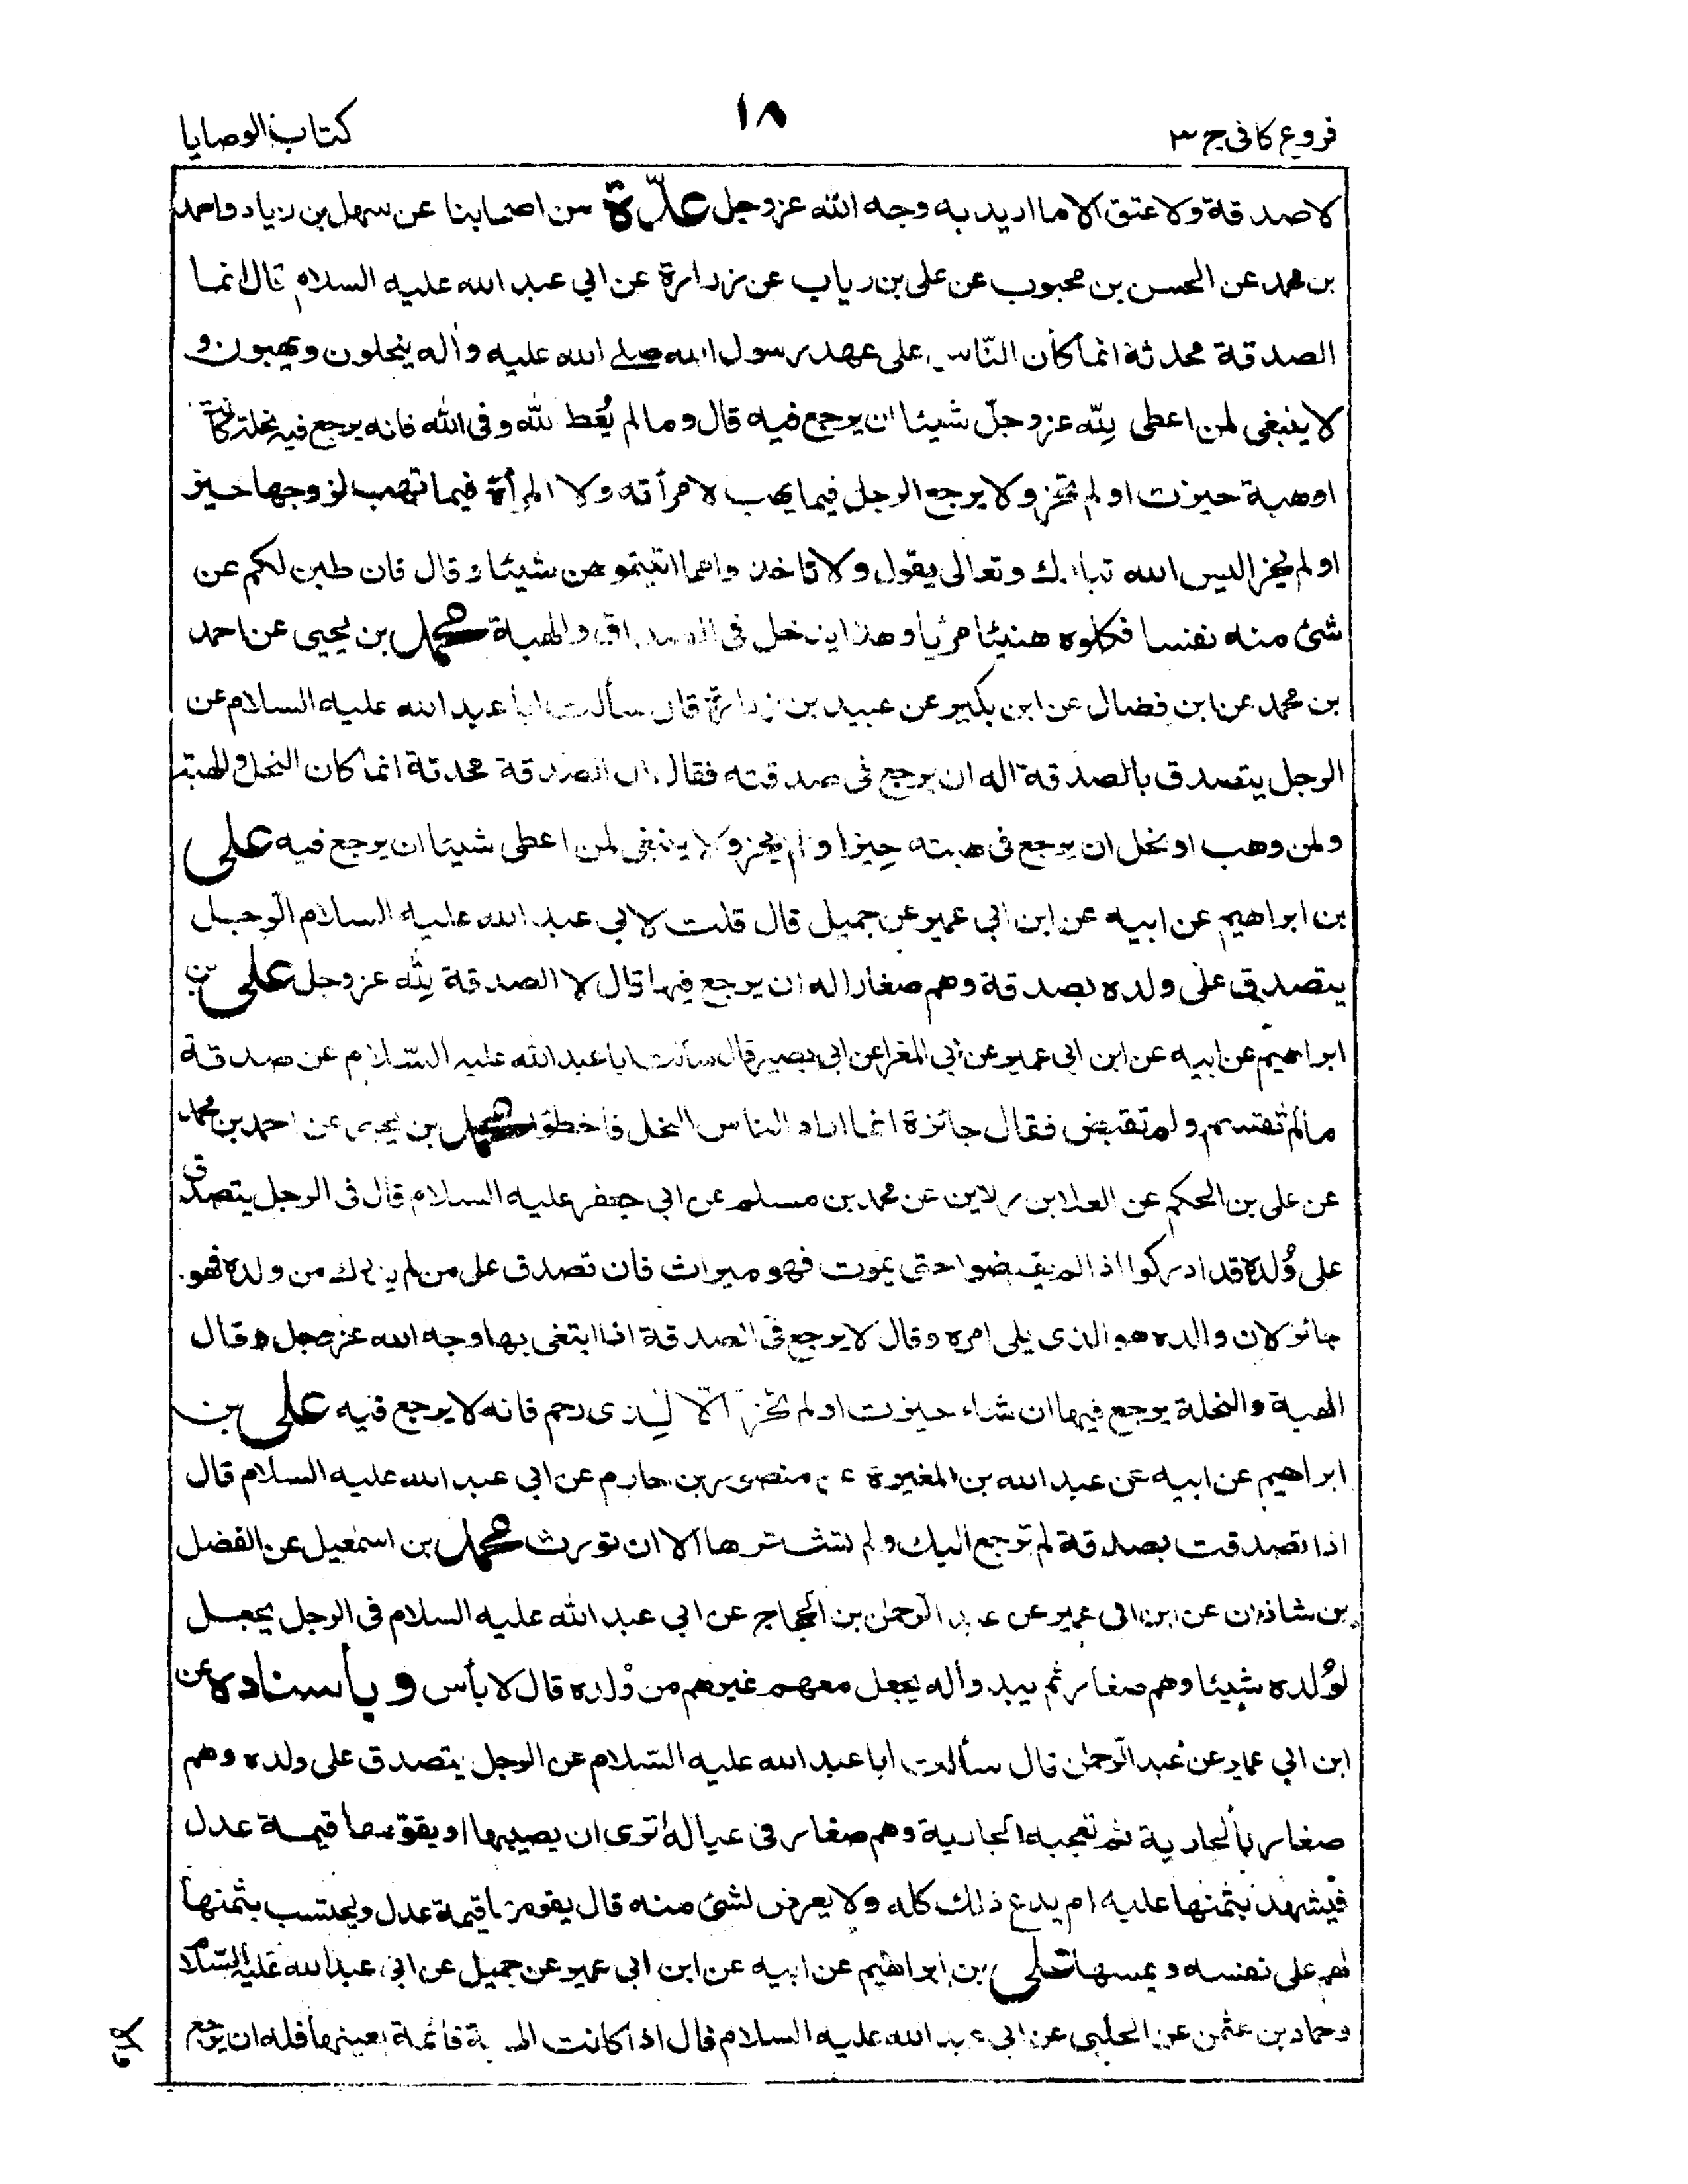 فروع کافی ج ۳
۱۸
کتاب الوصایا
لا صدقة ولا عتق الا ما اريد به وجه الله عزوجل عدّة من اصحابنا عن سهل بن زياد واحمد
بن محمد عن الحسن بن محبوب عن على بن رياب عن زرارة عن ابي عبد الله عليه السلام قال انما
الصدقة محدثة انما كان النّاس على عهد رسول الله صلے الله عليه وآله ينحلون ويهبون و
لا ينبغى لمن اعطى لِلّه عزوجلّ شيئا ان يرجع فيه قال وما لم يُعَط لله وفى الله فانه يرجع فيه نحلة كانت
اوهبة حيزت اولم تحز ولا يرجع الرجل فيما يهب لامرأته ولا المرأة فيما تهب لزوجها حيز
اولم يحز اليس الله تبارك وتعالى يقول ولا تاخذوا مما اتيتموهن شيئا وقال فان طبن لكم عن
شئ منه نفسا فكلوه هنيئا مريا وهذا يدخل فى الصداق والهبة محمد بن يحيى عن احمد
بن محمد عن ابن فضال عن ابن بكير عن عبيد بن زرارة قال سألت ابا عبد الله عليه السلام عن
الرجل يتصدق بالصدقة اله ان يرجع فى صدقته فقال ان الصدقة محدثة انما كان النحل والهبة
ولمن وهب او نحل ان يرجع فى هبته حيز او لم يحز ولا ينبغى لمن اعطى شيئا ان يرجع فيه على
بن ابراهيم عن ابيه عن ابن ابي عمير عن جميل قال قلت لابي عبد الله عليه السلام الرجل
يتصدق على ولده بصدقة وهم صغار اله ان يرجع فيها قال لا الصدقة لِلّه عزوجل على بن
ابراهيم عن ابيه عن ابن ابي عمير عن ابي المغرا عن ابي بصير قال سألت ابا عبد الله عليه السّلام عن صدقة
مالم تقسم ولم تقبض فقال جائزة انما اراد الناس النحل فاخطؤا محمد بن يحيى عن احمد بن محمد
عن على بن الحكم عن العلا بن رزين عن محمد بن مسلم عن ابي جعفر عليه السلام قال فى الرجل يتصدق
على وُلده قد ادركوا اذا لم يقبضوا حتى يموت فهو ميراث فان تصدق على من لم يدرك من ولده فهو
جائز لان والده هو الذى يلى امره وقال لا يرجع فى الصدقة اذا ابتغى بها وجه الله عزوجل وقال
الهبة والنحلة يرجع فيها ان شاء حيزت اولم تحز الّا لِذى رحم فانه لا يرجع فيه على بن
ابراهيم عن ابيه عن عبد الله بن المغيرة عن منصور بن حازم عن ابي عبد الله عليه السلام قال
اذا تصدقت بصدقة لم ترجع اليك ولم تشترها الا ان تورث محمد بن اسمٰعيل عن الفضل
بن شاذان عن ابن ابى عمير عن عبد الرّحمٰن بن الحجاج عن ابي عبد الله عليه السلام فى الرجل يجعل
لوُلده شيئا وهم صغار ثم يبدوأله يجعل معهم غيرهم من وُلده قال لا بأس وبأسناده عن
ابن ابي عمير عن عبد الرّحمٰن قال سألت ابا عبد الله عليه السّلام عن الرجل يتصدق على ولده وهم
صغار بالجارية ثم تعجبه الجارية وهم صغار فى عياله أترى ان يصيبها او يقوّمها قيمة عدل
فيشهد بثمنها عليه ام يدع ذلك كله ولا يعرض لشئ منه قال يقومها قيمة عدل ويحتسب بثمنها
لهم على نفسه ويمسها على بن ابراهيم عن ابيه عن ابن ابي عمير عن جميل عن ابي عبد الله عليه السّلام
وحماد بن عثمن عن الحلبى عن ابي عبد الله عليه السلام قال اذا كانت الهبة قائمة بعينها فله ان يرجع